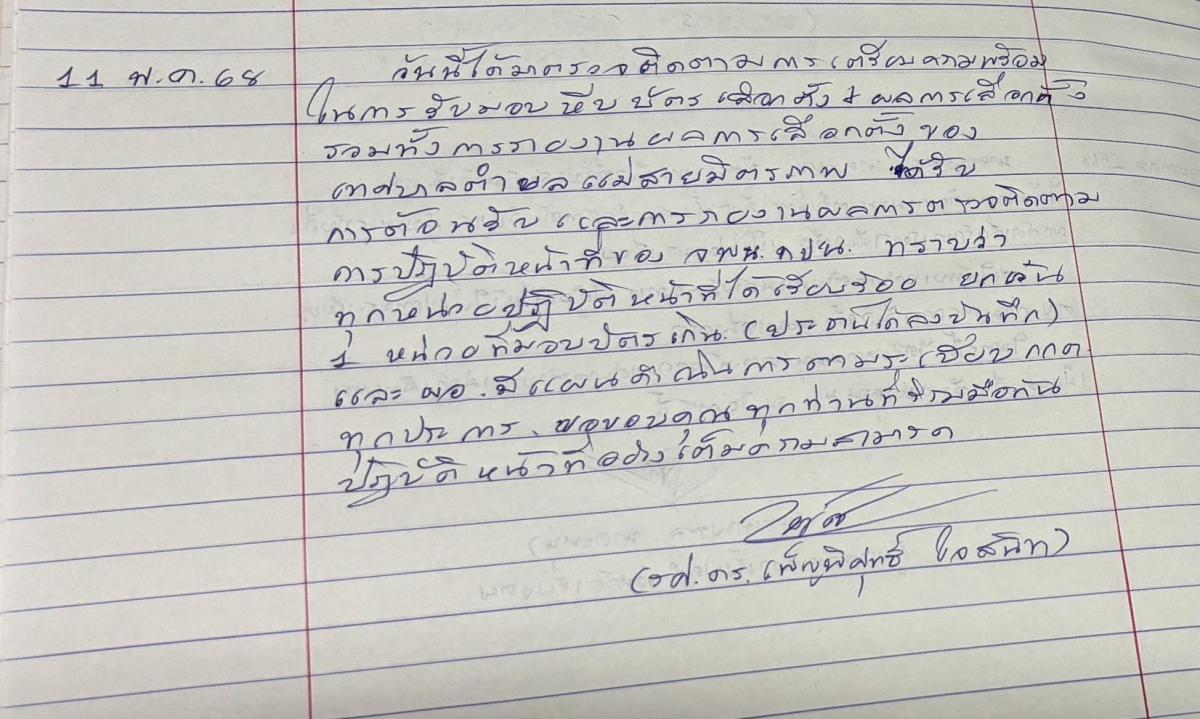 11 พ.ค. 68 วันนี้ได้มาตรวจติดตามการเตรียมความพร้อม
ในการรับมอบหีบบัตรเลือกตั้ง + ผลการเลือกตั้ง
รวมทั้งการรายงานผลการเลือกตั้งของ
เทศบาลตำบลแม่สายมิตรภาพ ได้รับ
การต้อนรับและการรายงานผลการตรวจติดตาม
การปฏิบัติหน้าที่ของ จพน. กปน. ทราบว่า
ทุกหน่วยปฏิบัติหน้าที่ได้เรียบร้อย ยกเว้น
1 หน่วยที่มอบบัตรเกิน (ประธานได้ลงบันทึก)
และ ผอ. มีแผนดำเนินการตามระเบียบ กกต.
ทุกประการ ขอขอบคุณทุกท่านที่ร่วมมือกัน
ปฏิบัติหน้าที่อย่างเต็มความสามารถ
(รศ.ดร. เพ็ญพิศุทธิ์ ใจสนิท)